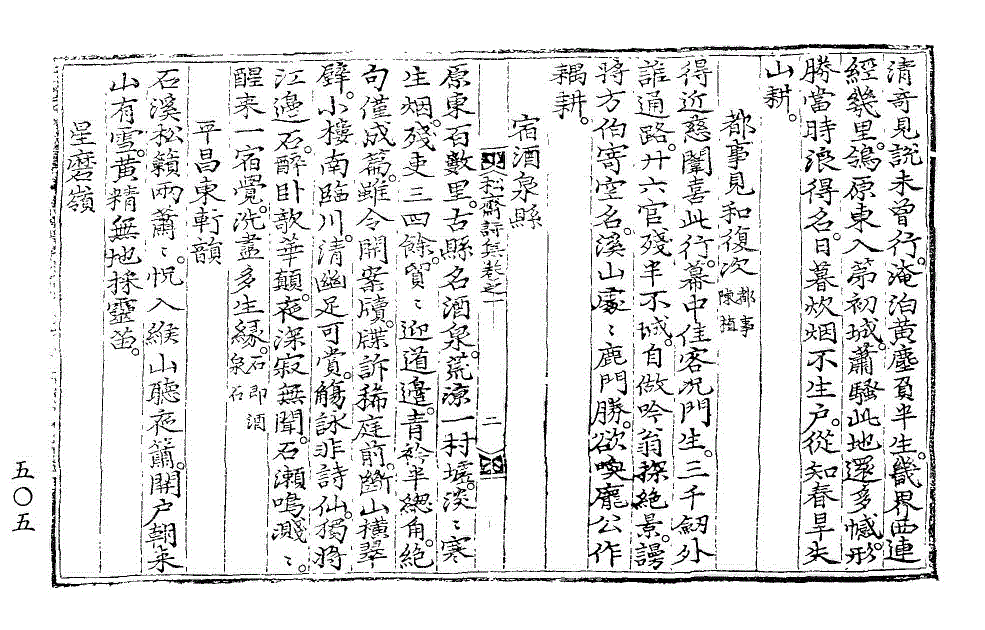 清奇見說未曾行。淹泊黃塵負半生。畿界西連
經幾里。鴒原東入第初城。蕭騷此地還多憾。形
勝當時浪得名。日暮炊烟不生戶。從知春旱失
山耕。
都事見和復次 都事陳植
得近慈闈喜此行。幕中佳客况門生。三千劒外
誰通路。廿六官殘半不城。自做吟翁探絕景。謾
將方伯寄空名。溪山處〻鹿門勝。欲喚龐公作
耦耕。
宿酒泉縣
松齋詩集卷之一 二
原東百數里。古縣名酒泉。荒凉一村墟。淡〻寒
生烟。殘吏三四餘。貿〻迎道邊。青衿半緫角。絶
句僅成篇。雖令開案牘。牒訴稀庭前。斷山橫翠
壁。小樓南臨川。清幽足可賞。觴詠非詩仙。獨將
江邊石。醉卧欹華顛。夜深寂無聞。石瀨鳴濺〻。
醒来一宿覺。洗盡多生緣。石即酒泉石
平昌東軒韻
石溪松籟兩蕭〻。怳入緱山聽夜簫。開户朝来
山有雪。黃精無地採靈苗。
星磨嶺
五〇五